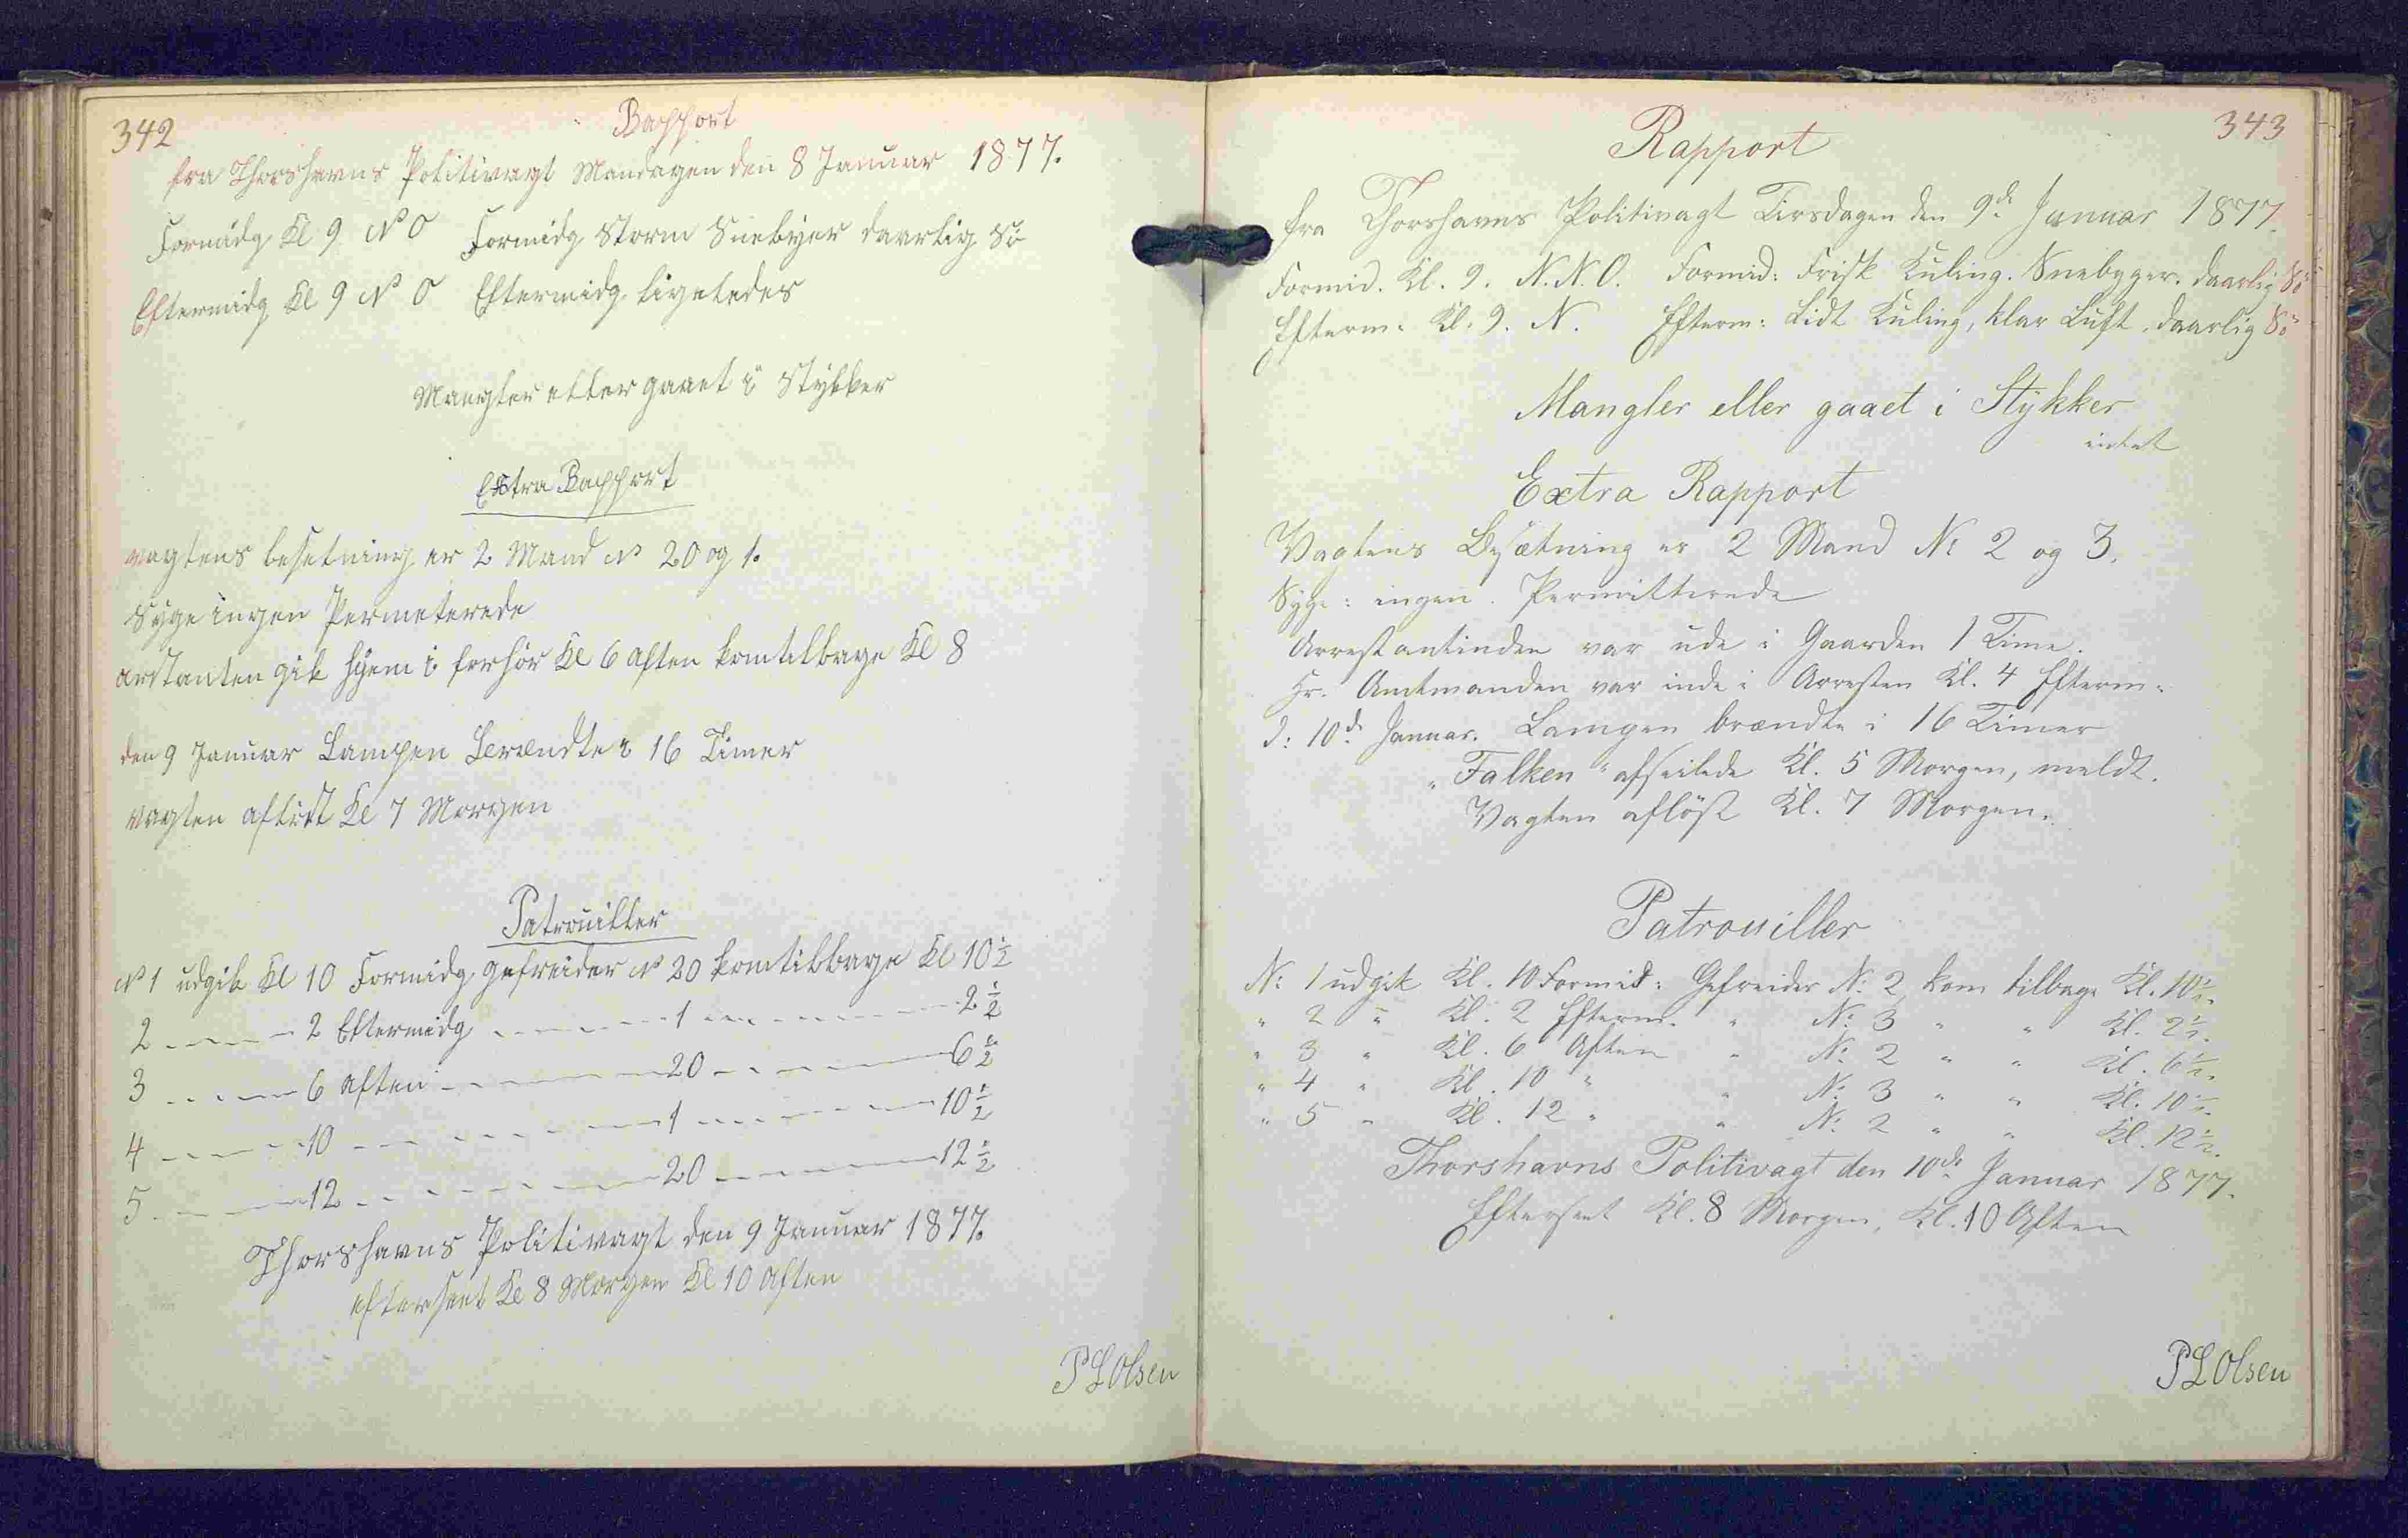 342
Rapport
fra Thorshavns Politivagt Mandagen den 8 Januar 1877.
Formidg Kl 9 N O Formidg Storm Snebyer daarlig Sö
Eftermidg Kl 9 N O Eftermidg ligeledes
Mangler eller gaaet i Stykker
Extra Rapport
vagtens besetning er 2 Mand No 20 og 1.
Syge ingen Permeterede
arstanten gik hjem i forhör Kl 6 aften kom tilbage Kl 8
den 9 Januar Lampen Brændte i 16 Timer
vagten aflöst Kl 7 Morgen
Patrouiller
No 1 udgik Kl 10 Formidg gefreider No 20 kom tilbage Kl 10½
2 — — — 2 Eftermidg — — — 1 — — — 2½
3 — — — 6 aften — — — 20 — — — 6½
4 — — — 10 — — — 1 — — — 10½
5 — — — 12 — — — 20 — — — 12½
Thorshavns Politivagt den 9 Januar 1877.
efterseet Kl 8 Morgen Kl 10 Aften
P L Olsen
343
Rapport
fra Thorshavns Politivagt Tirsdagen den 9de Januar 1877.
Formid. Kl. 9. N.N.O. Formid: Frisk Kuling. Snebyger. daarlig Sö
Efterm: Kl. 9. N. Efterm: Lidt Kuling, klar Luft, daarlig Sö
Mangler eller gaaet i Stykker
intet
Extra Rapport
Vagtens Besætning er 2 Mand No 2 og 3.
Syge: ingen. Permitterede
Arrestantinden var ude i Gaarden 1 Time.
Hr. Amtmanden var inde i Arresten Kl. 4 Efterm:
d: 10de Januar. Lampen brændte i 16 Timer
"Falken" afseilede Kl. 5 Morgen, meldt.
Vagten aflöst Kl. 7 Morgen.
Patrouiller
No: 1 udgik Kl. 10 Formid: Gefreider No: 2 kom tilbage Kl. 10½.
" 2 " Kl. 2 Efterm. " No: 3 " " Kl. 2½.
" 3 " Kl. 6 Aften " No: 2 " " Kl. 6½.
" 4 " Kl. 10 " " No: 3 " " Kl. 10½.
" 5 " Kl. 12 " " No: 2 " " Kl. 12½.
Thorshavns Politivagt den 10de Januar 1877.
Efterseet Kl. 8 Morgen, Kl. 10 Aften
P L Olsen